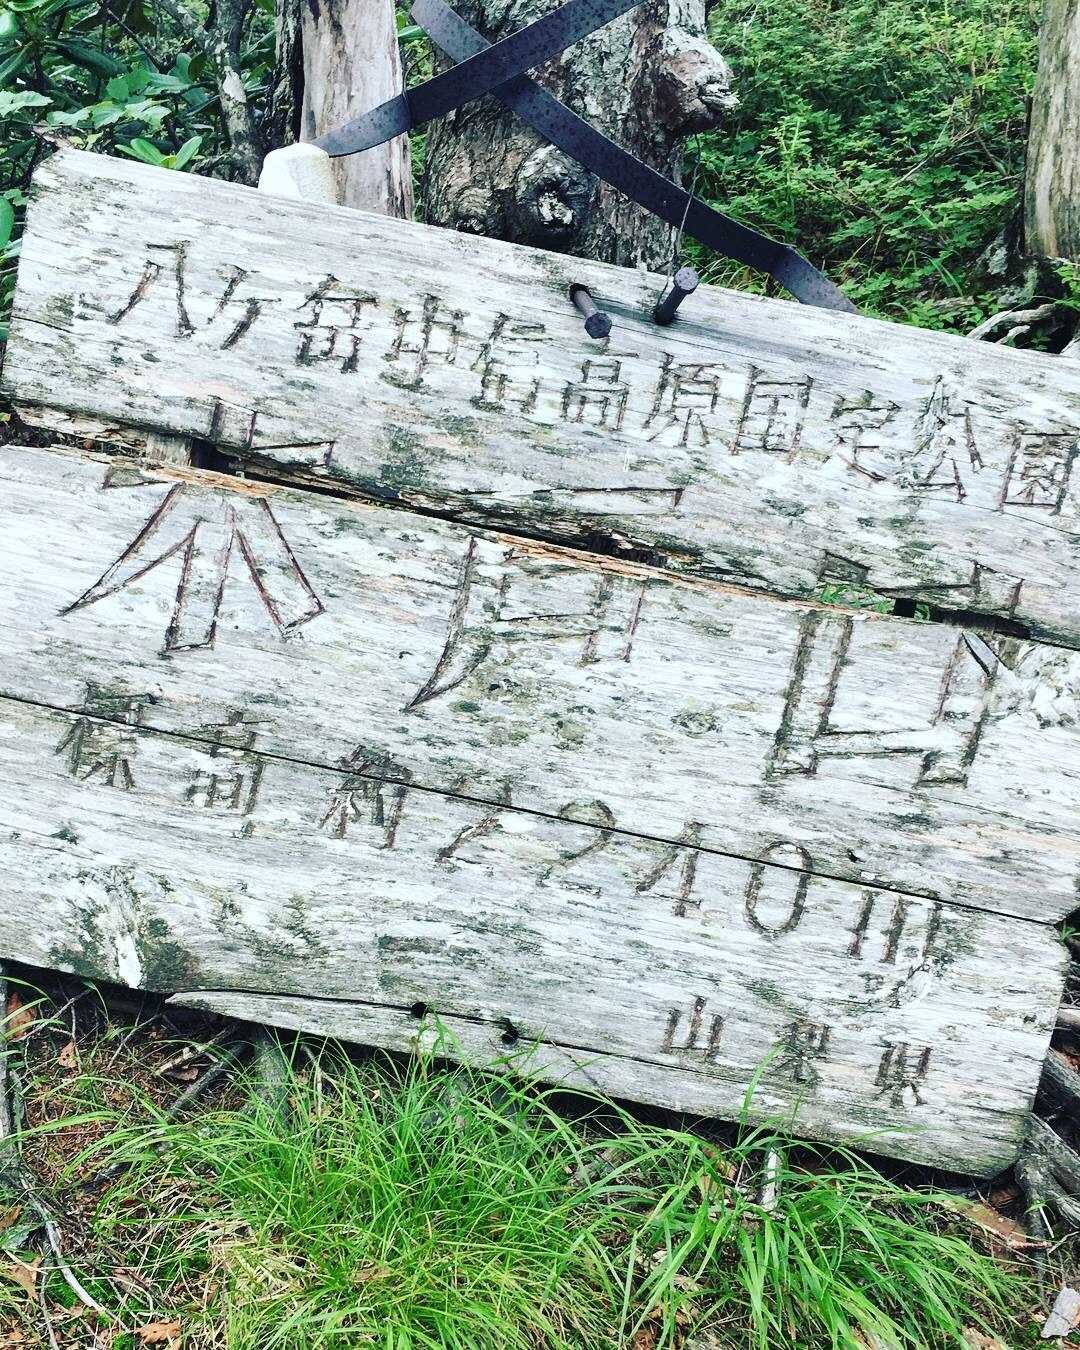 八ヶ岳中信高原国定公園
木戸口
標高 2240m
山梨県